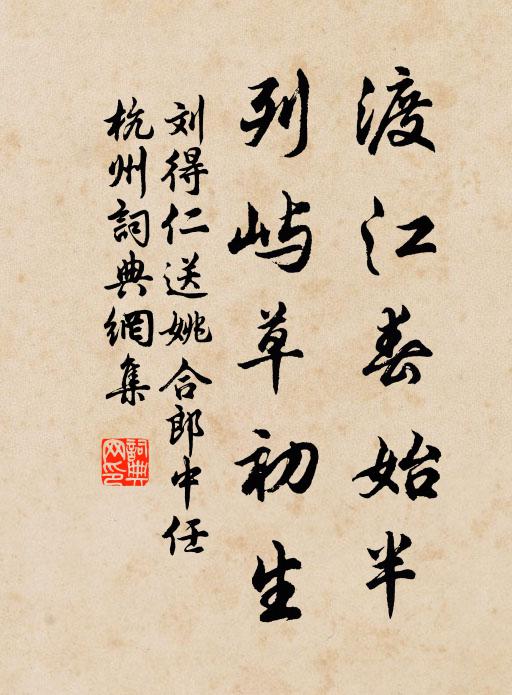 渡江春始半
列屿草初生
刘得仁送姚合郎中任
杭州詞典網集
詞典
网印